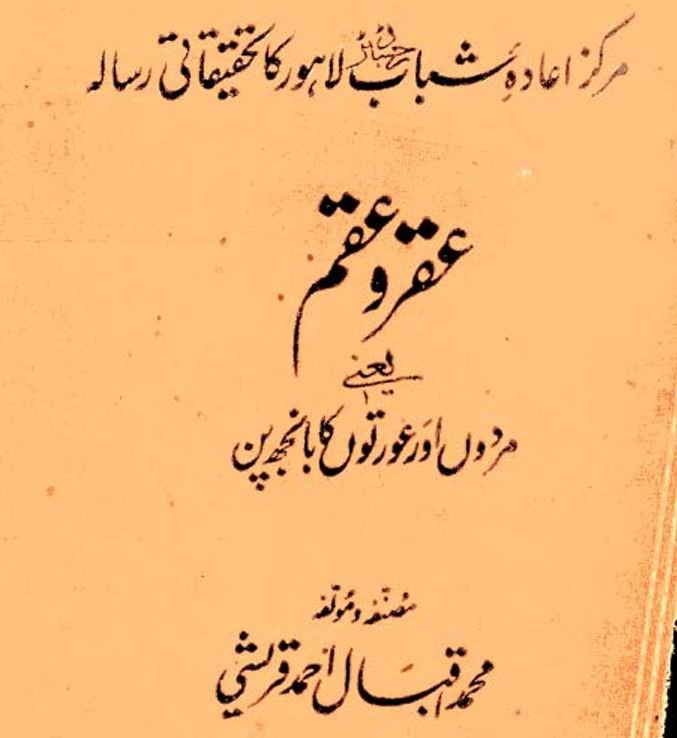 مرکز اعادۂ شباب جسٹرڈ لاہور کا تحقیقاتی رسالہ
عقر و عقم
یعنی
مردوں اور عورتوں کا بانجھ پن
مصنفہ و مولفہ
محمد اقبال احمد قریشی